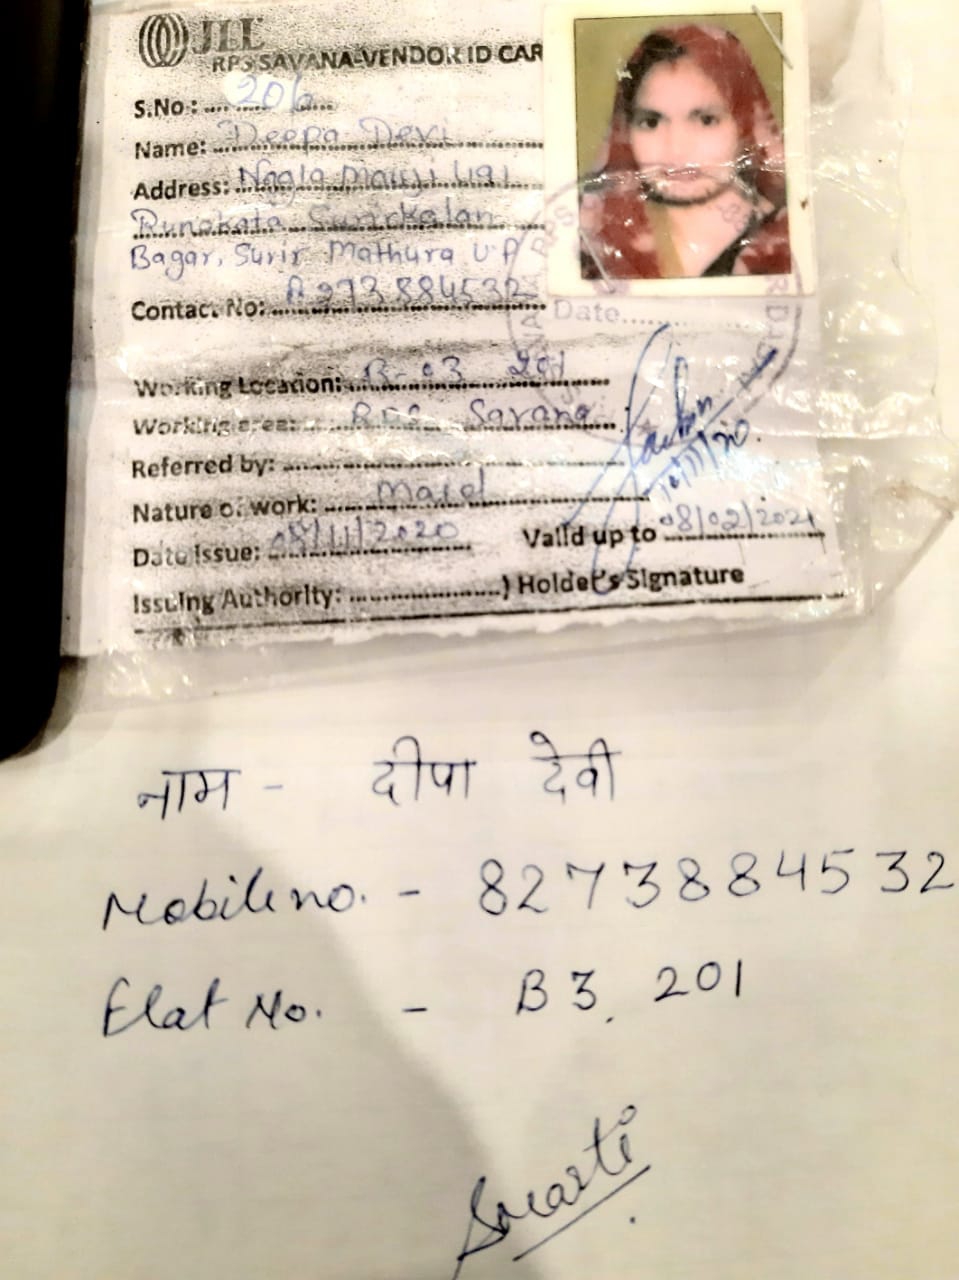 JLL
RPS SAVANA-VENDOR ID CAR
S.No: 206
Name: Deepa Devi
Address: Nagla Mauji 491
Runakata Surirkalan
Bagar, Surir Mathura U.P
Contact No: 8273884532
Date
Working Location: B-03 201
Working area: RPS Savana
Referred by:
Nature of work: Maid
Date Issue: 08/11/2020 Valid up to 08/02/2021
Issuing Authority: ) Holder's Signature
नाम - दीपा देवी
Mobile no. - 8273884532
Flat No. - B3, 201